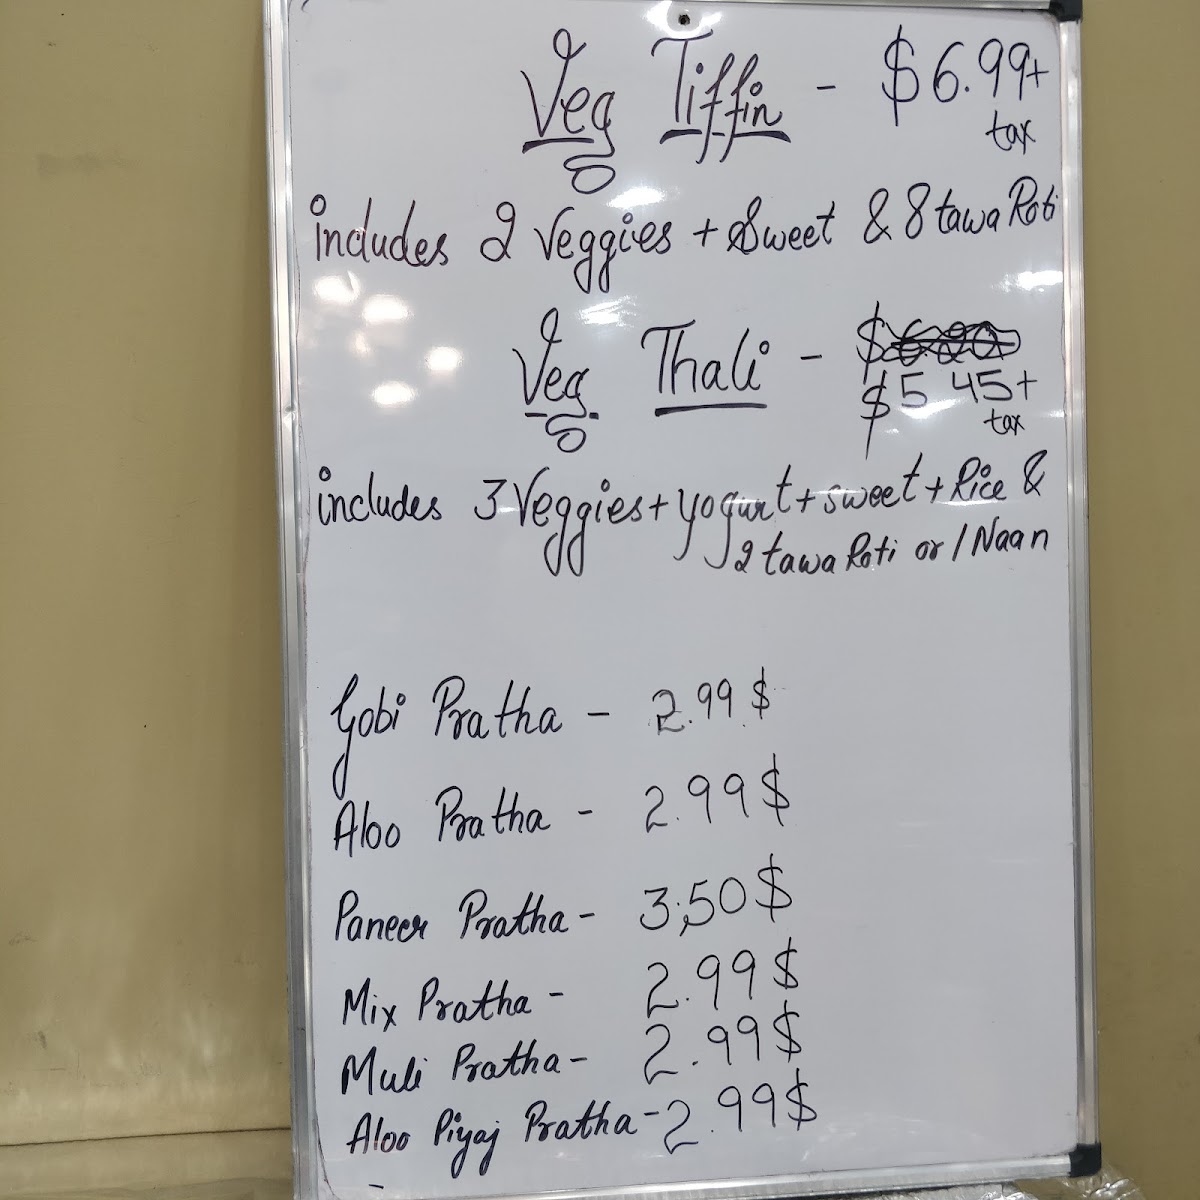 Veg Tiffin - $6.99+
tax
includes 2 Veggies + Sweet & 8 tawa Roti
Veg Thali - $
$5 45+
tax
includes 3 Veggies + yogurt + sweet + Rice &
2 tawa Roti or 1 Naan
Gobi Pratha - 2.99 $
Aloo Pratha - 2.99$
Paneer Pratha - 3.50$
Mix Pratha - 2.99$
Muli Pratha - 2.99$
Aloo Piyaj Pratha - 2.99$